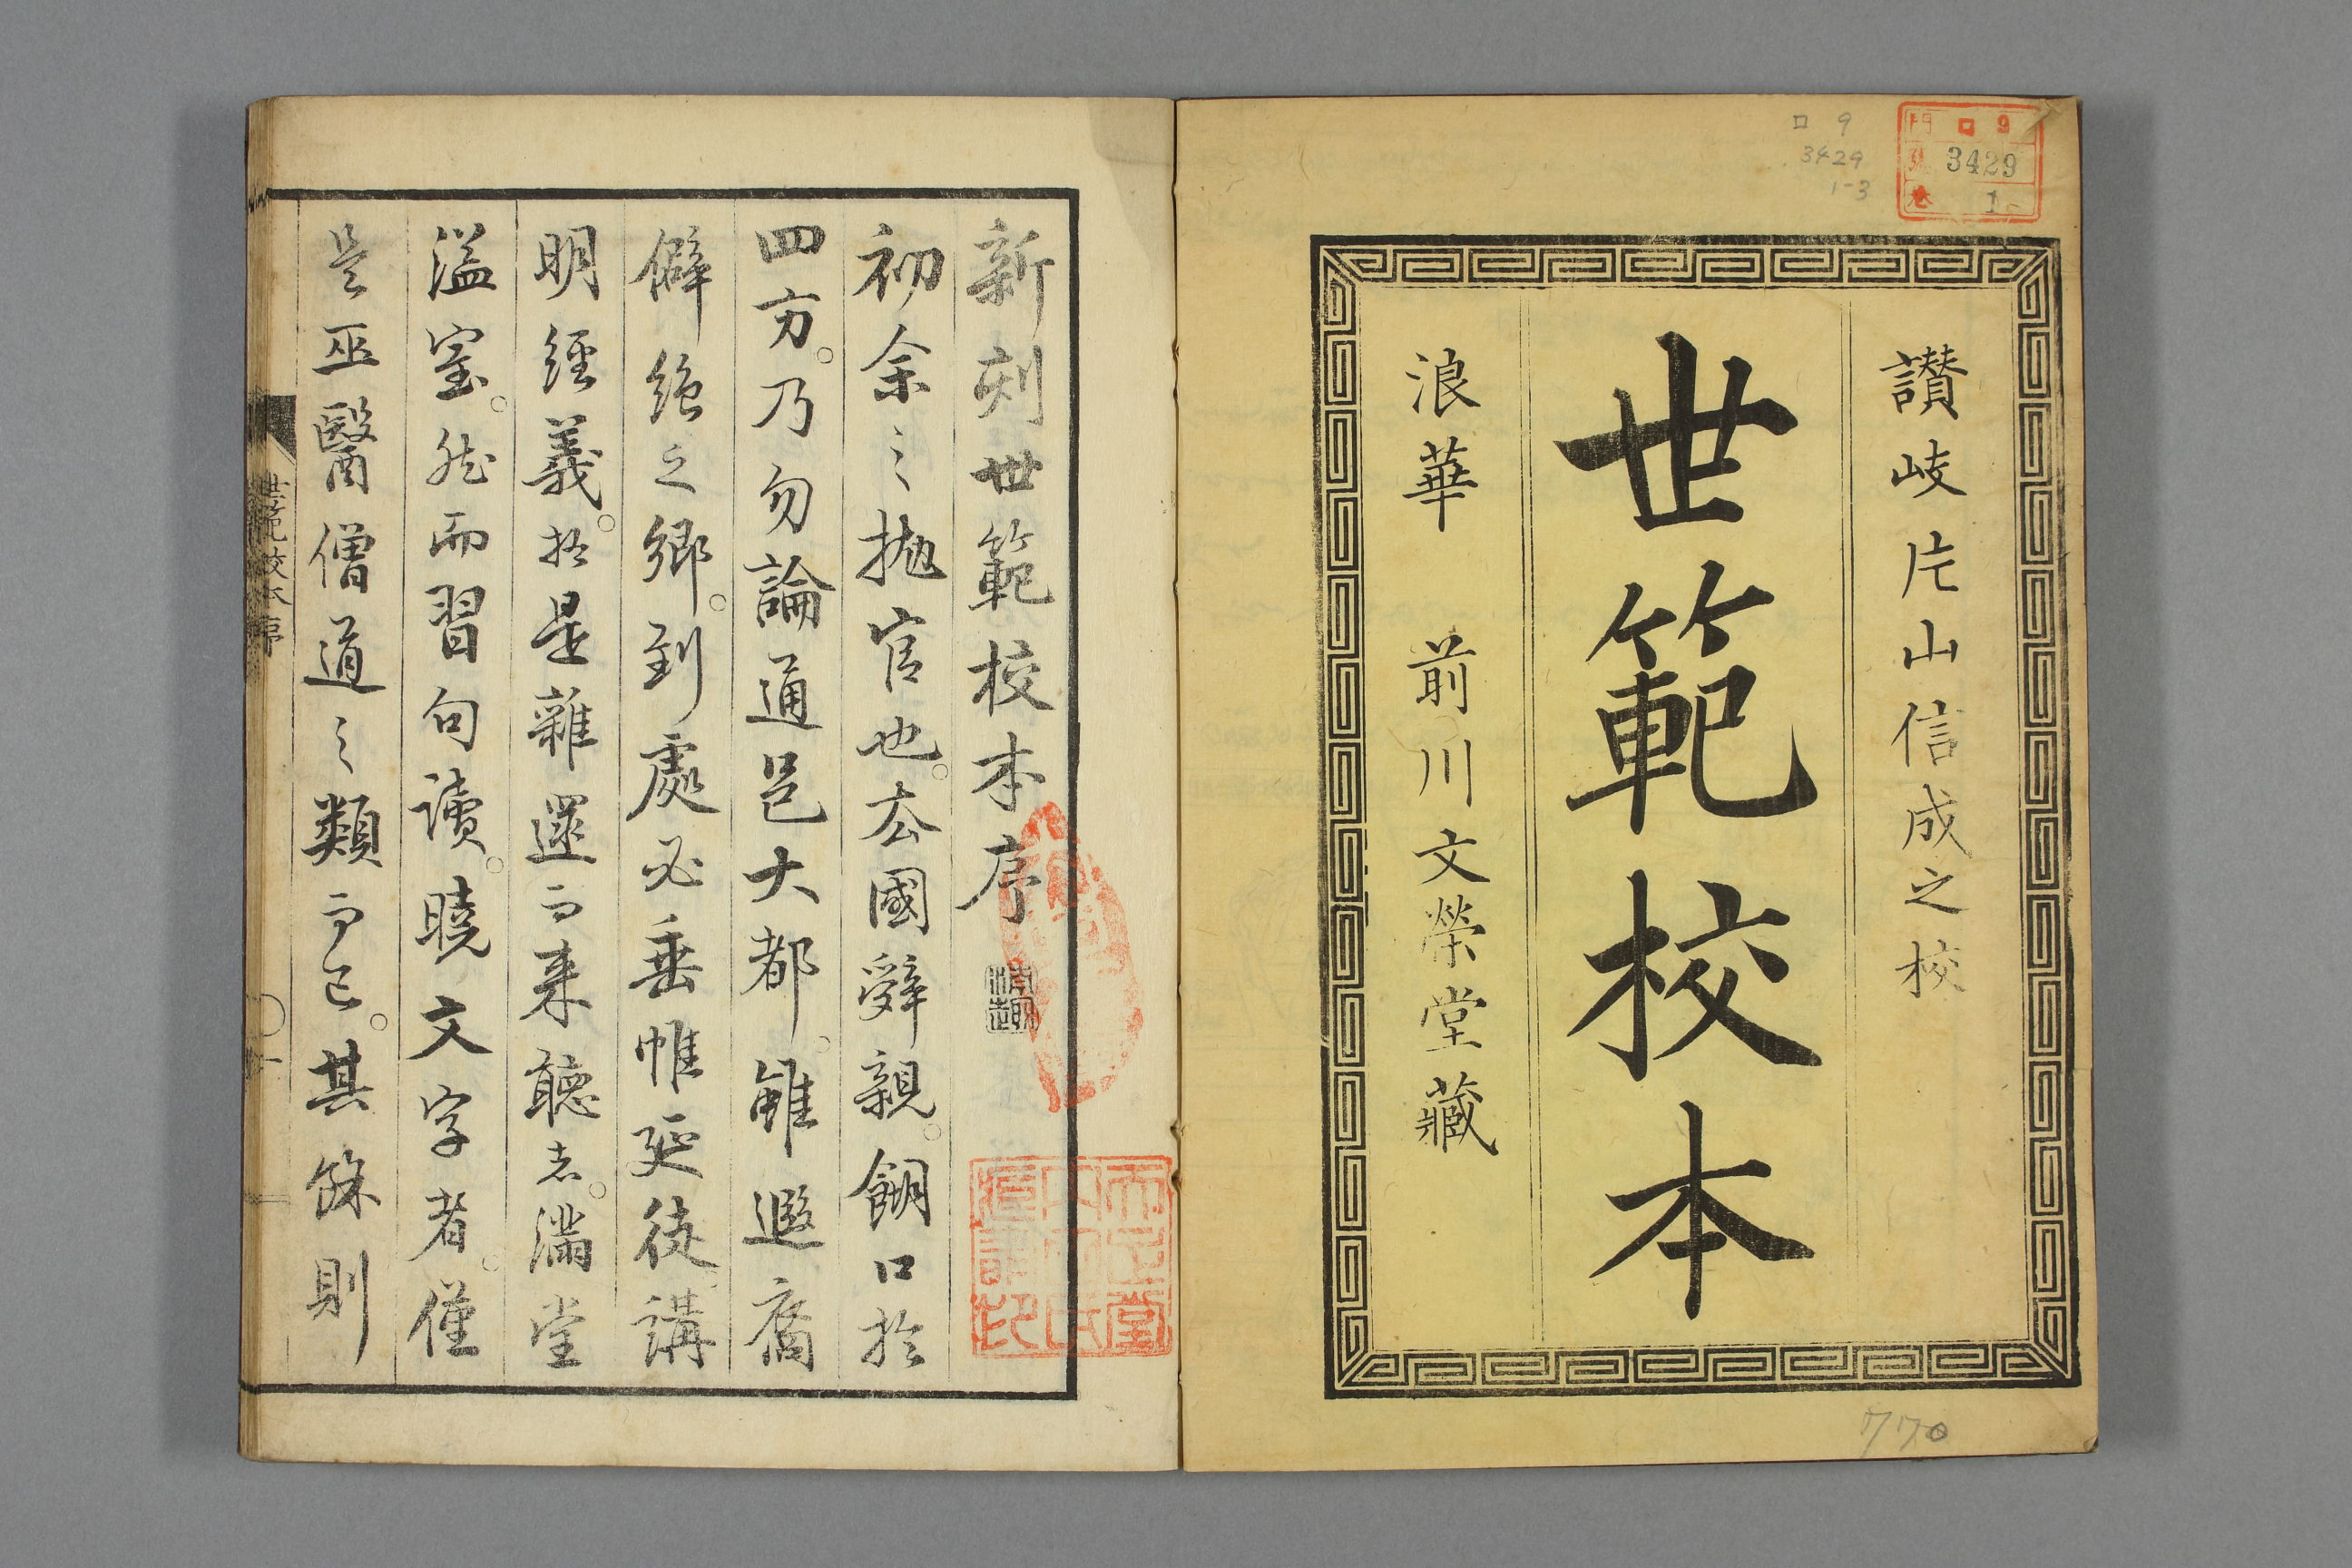 門 ロ 9
號 3429
巻 1
ロ 9
3429
1-3
讃岐片山信成之校
世範校本
浪華 前川文榮堂藏
770
新刻世範校本序
初余之抛官也。去國辭親。餬口於
四方。乃勿論通邑大都。雖遐
僻絶之鄉。到處必垂帷延徒講
明經義。於是雜遝而來聽者。滿堂
溢室。然而習句讀。曉文字者。僅
是巫醫僧道之類而已。其餘則
世範校本序